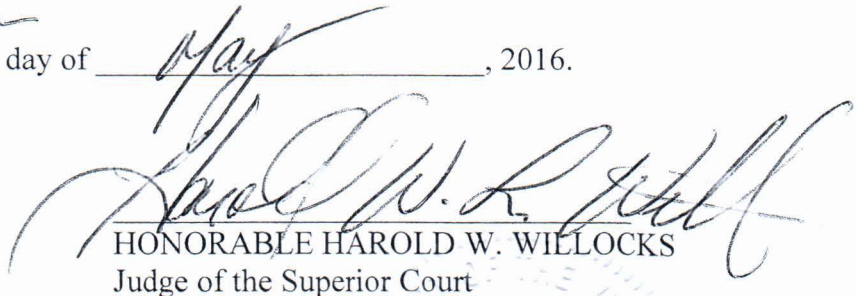 day of May, 2016.
Harold W. L. Will
HONORABLE HAROLD W. WILLOCKS
Judge of the Superior Court